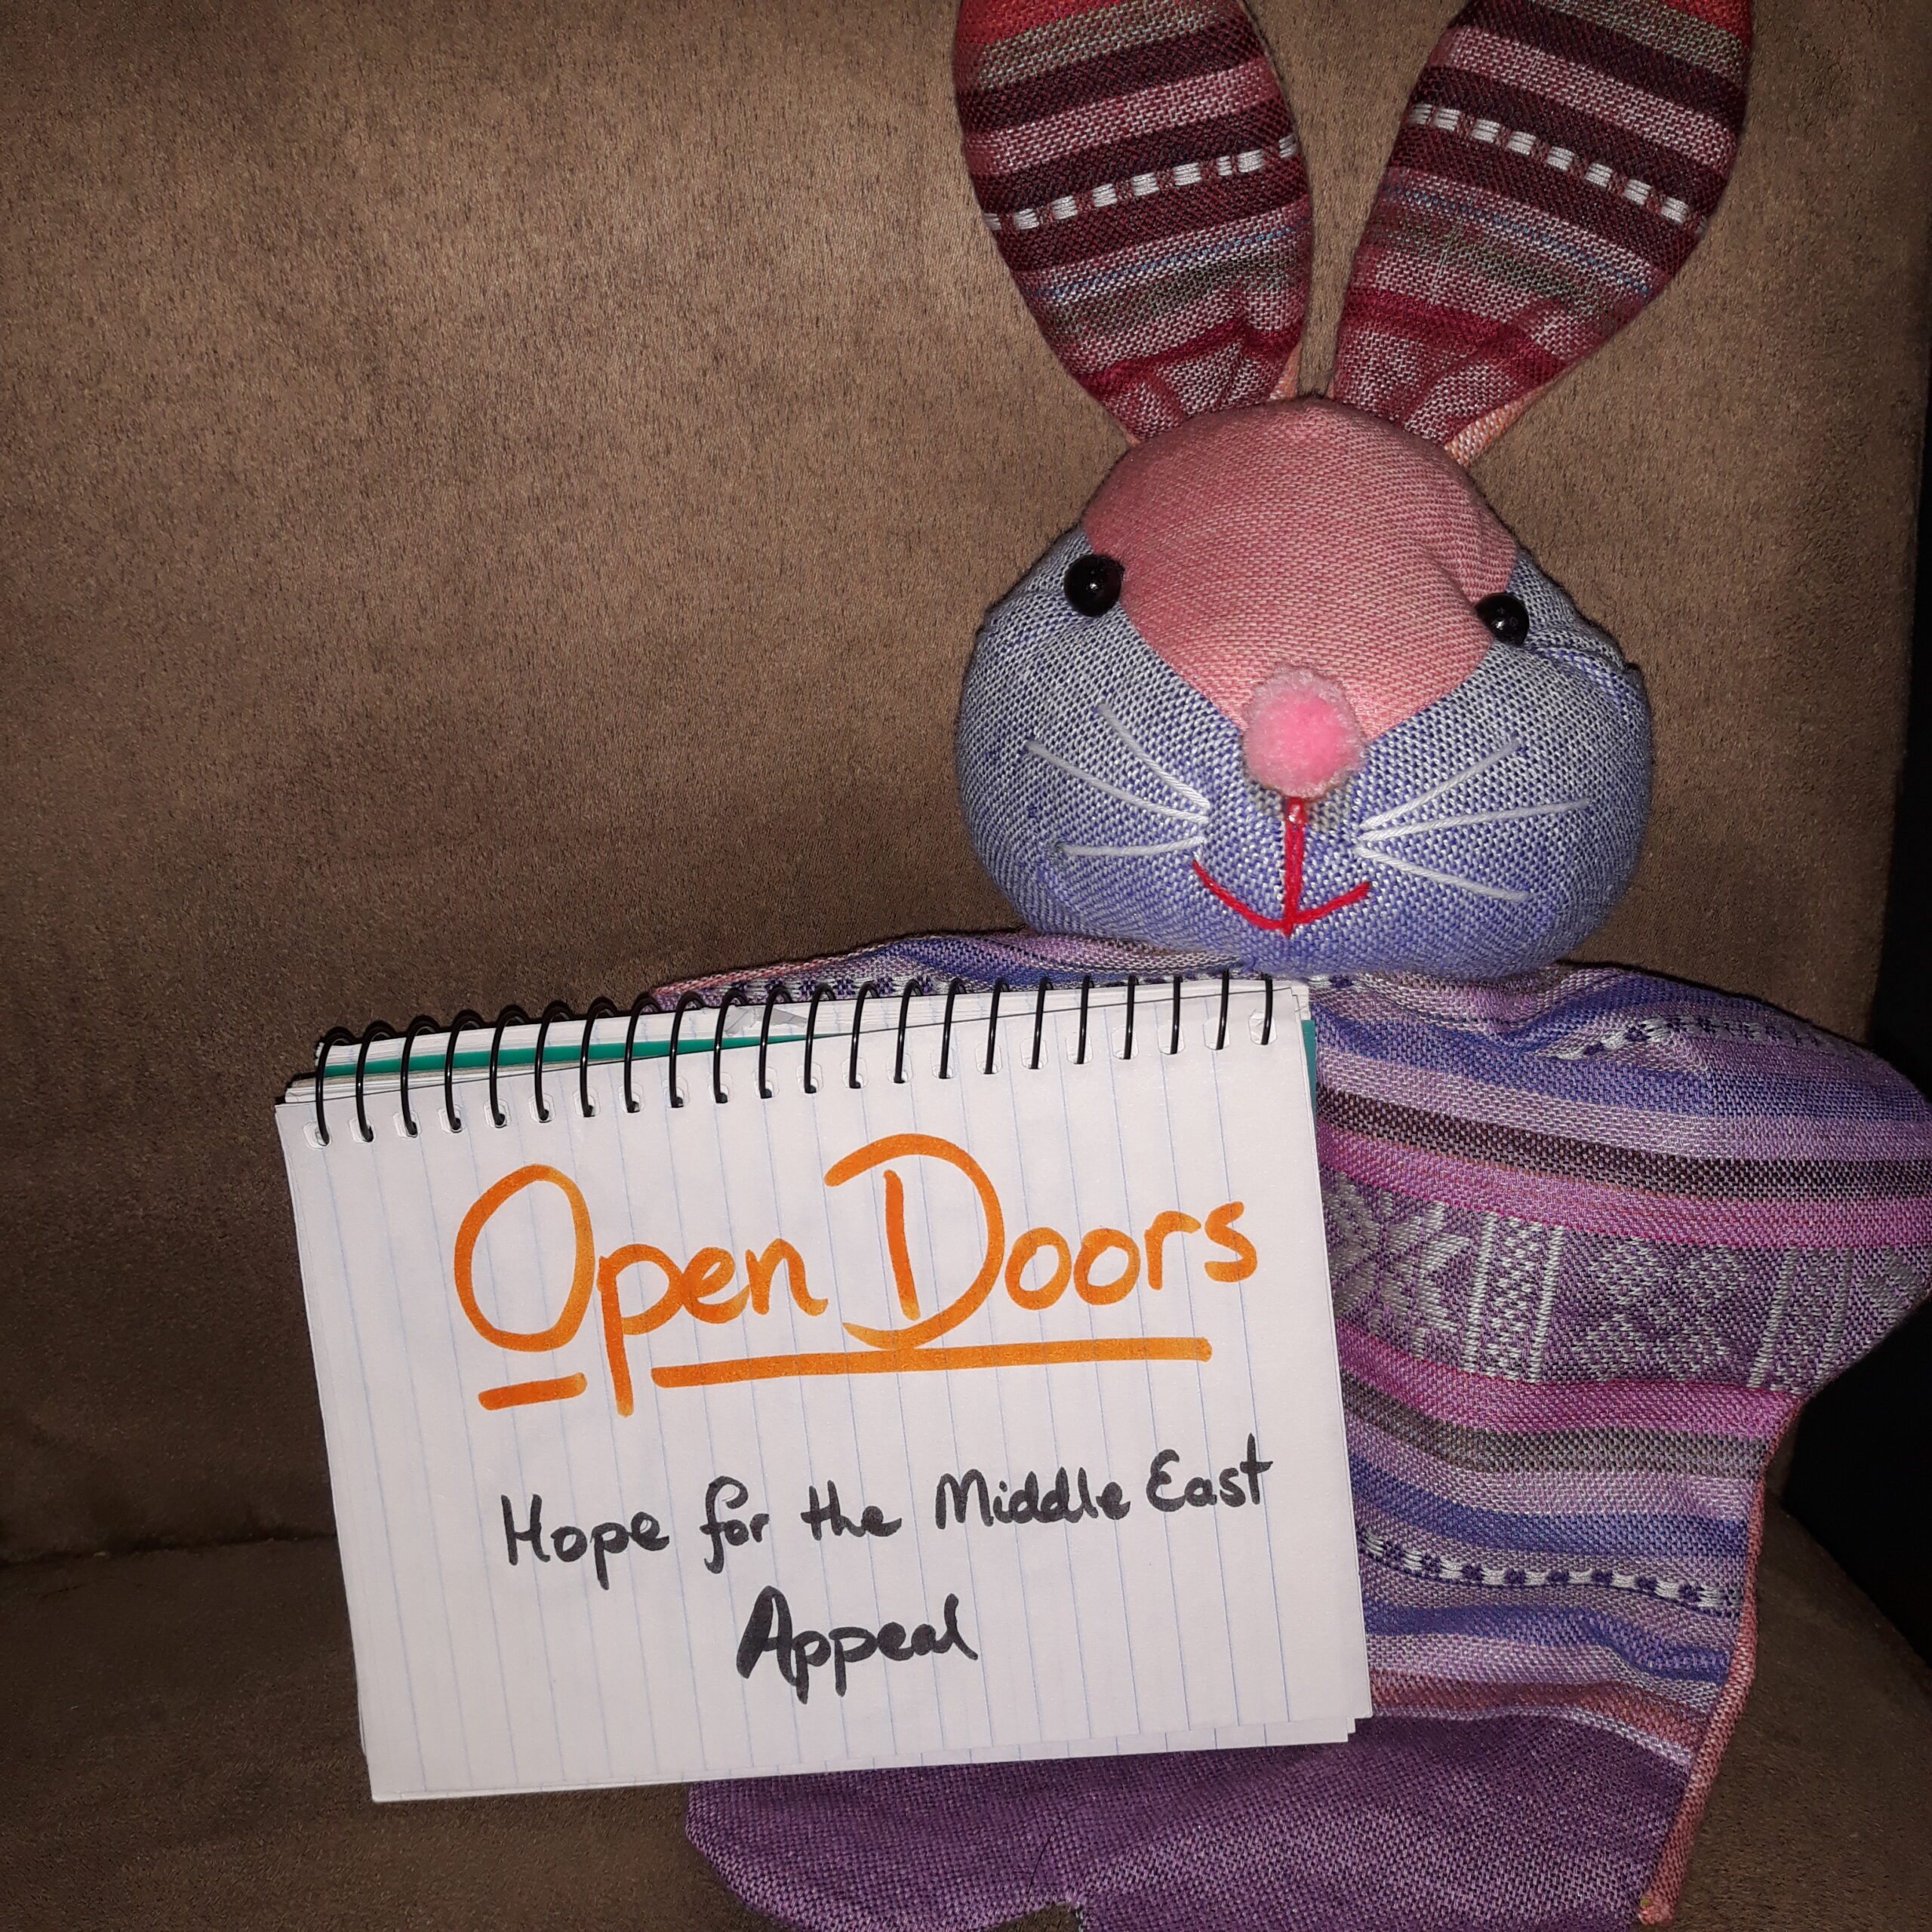 Open Doors
Hope for the Middle East
Appeal